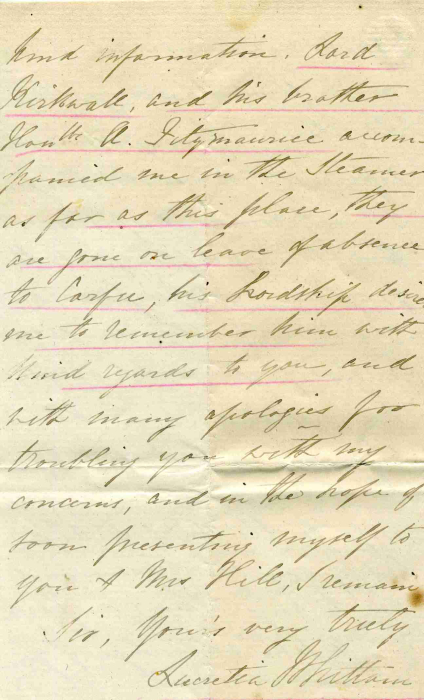 kind information. Lord
Kirkwall, and his brother
Hon.ble A. Fitzmaurice accom-
panied me in the Steamer
as far as this place, they
are gone on leave of absence
to Corfu, his Lordship desires
me to remember him with
kind regards to you, and
with many apologies for
troubling you with my
concerns, and in the hope of
soon presenting myself to
you & Mrs Hill, I remain
Sir, Yours very truly
Lucretia Whittam